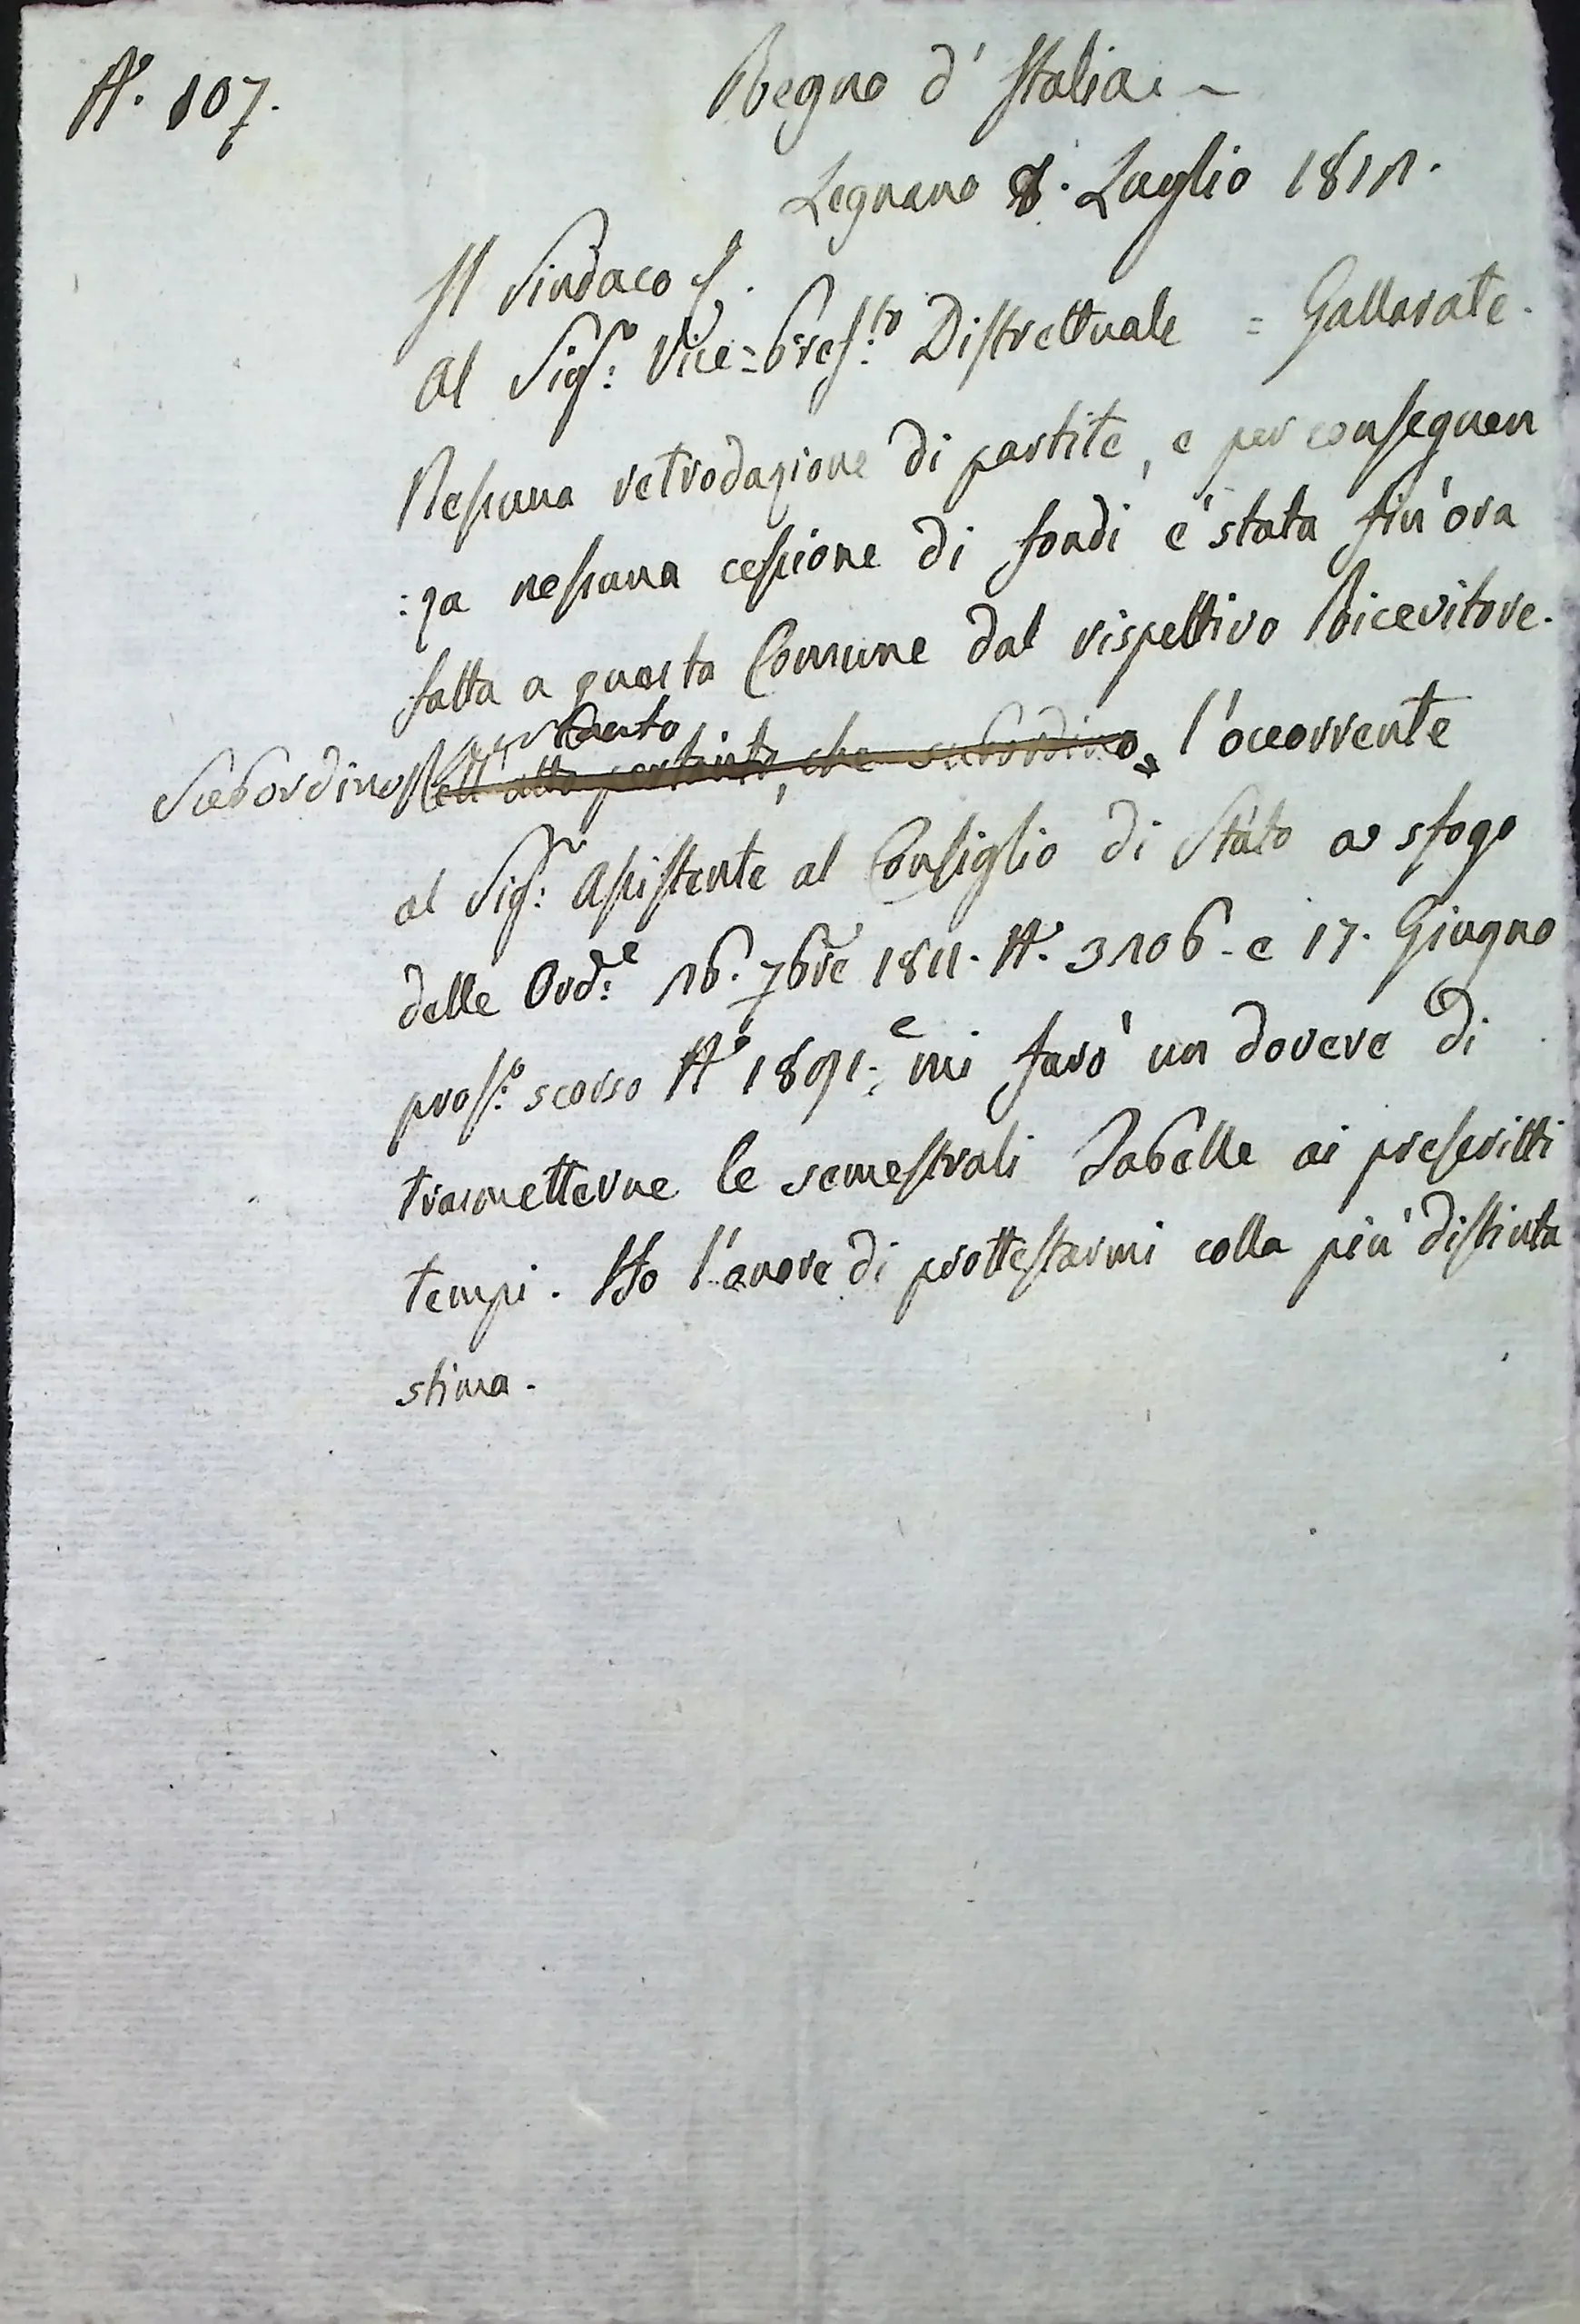 N.° 107.
Regno d'Italia. ~
Legnano 8. Luglio 1811.
Il Sindaco f.
Al Sig.r Vice=Pref.to Distrettuale = Gallarate.
Nessuna retrodazione di partite, e per conseguen
:za nessuna cessione di fondi è stata fin'ora
fatta a questa Comune dal rispettivo Ricevitore.
tanto
Subordino Nell'atto pertanto, che subordino l'occorrente
al Sig.r Assistente al Consiglio di Stato a sfogo
delle Ord.e 16. 7bre 1811. N.° 3106. e 17. Giugno
pros.o scorso N.° 1891. e mi farò un dovere di
trasmetterne le semestrali Tabelle ai prescritti
tempi. Ho l'onore di prottestarmi colla più distinta
stima.